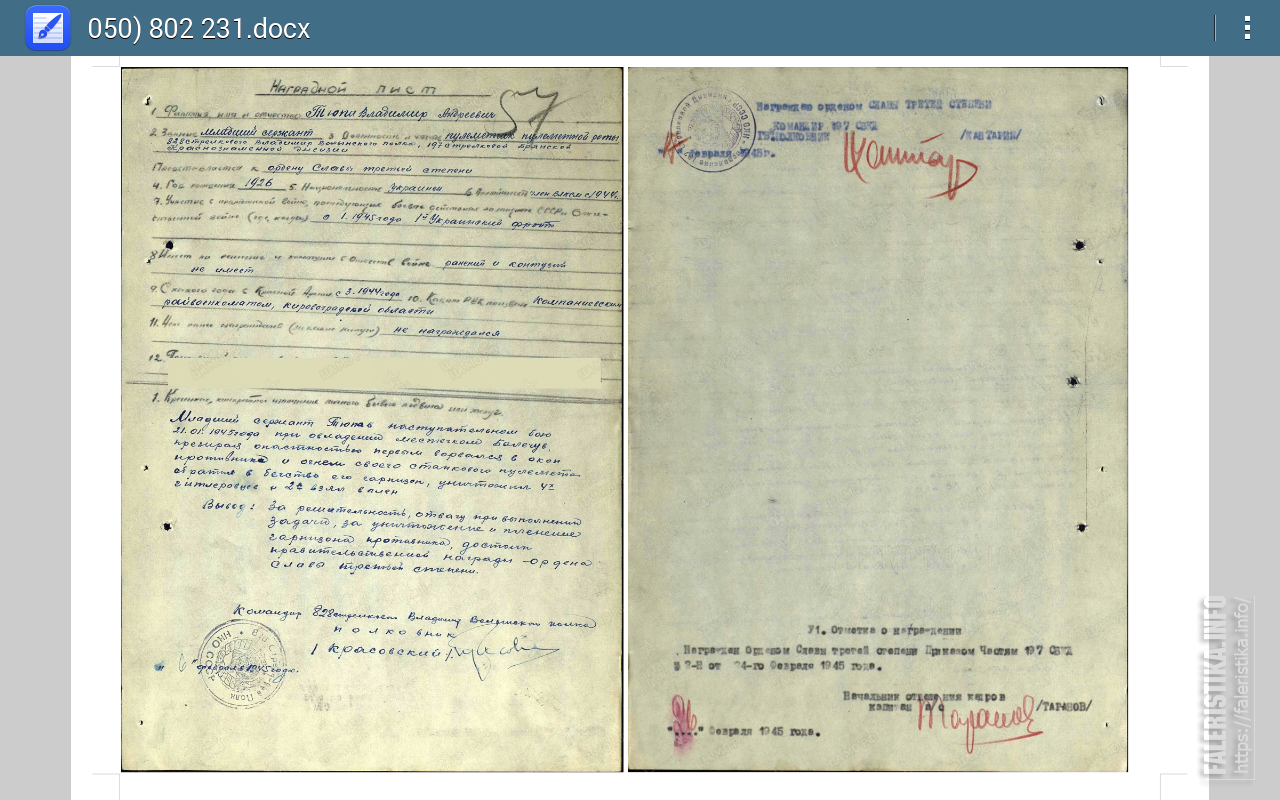 050) 802 231.docx
Наградной лист
57
1. Фамилия, имя и отчество Тюпа Владимир Андреевич
2. Звание младший сержант 3. Должность и часть пулеметчик пулеметной роты
828 стрелкового Владимир Волынского полка, 197 стрелковой Брянской
Краснознаменной дивизии
Представляется к ордену Славы третьей степени
4. Год рождения 1926 5. Национальность украинец 6. Партийность член влксм с 1944г.
7. Участие в гражданской войне, последующих боевых действиях по защите СССР и Отече-
ственной войне (где, когда) с 1.1945 года 1й Украинский фронт
8. Имеет ли ранения и контузии в Отечеств. войне ранений и контузий
не имеет
9. С какого года в Красной Армии с 3.1944 года 10. Каким РВК призван Компаниевским
райвоенкоматом, кировоградской области
11. Чем ранее награжден (за какие заслуги) не награждался
12.
1. Краткое, конкретное изложение личного боевого подвига или заслуг.
Младший сержант Тюпа в наступательном бою
21.01.1945 года при овладении местечком
презирая опастностью первым ворвался в окоп
противника и огнем своего станкового пулемета
обратил в бегство его гарнизон, уничтожил
гитлеровцев и 2х взял в плен
Вывод: За решательность, отвагу при выполнении
задачи, за уничтожение и пленение
гарнизона противника, достоин
правительственной награды - ордена
Слава третьей степени.
Командир 828 стрелкового Владимир Волынского полка
полковник
/Красовский/
" февраля 1945 года.
Награждаю орденом СЛАВЫ ТРЕТЕЙ СТЕПЕНИ
КОМАНДИР 197 СБКД
ПОЛКОВНИК /КАНТАРИЯ/
февраля 1945г.
У1. Отметка о награждении
Награжден Орденом Славы третей степени Приказом Частям 197 СБКД
№ 2-Н от 24-го Февраля 1945 года.
Начальник отделения кадров
капитан а/с /ТАРАНОВ/
26 Февраля 1945 года.
FALERISTIKA.INFO
https://faleristika.info/